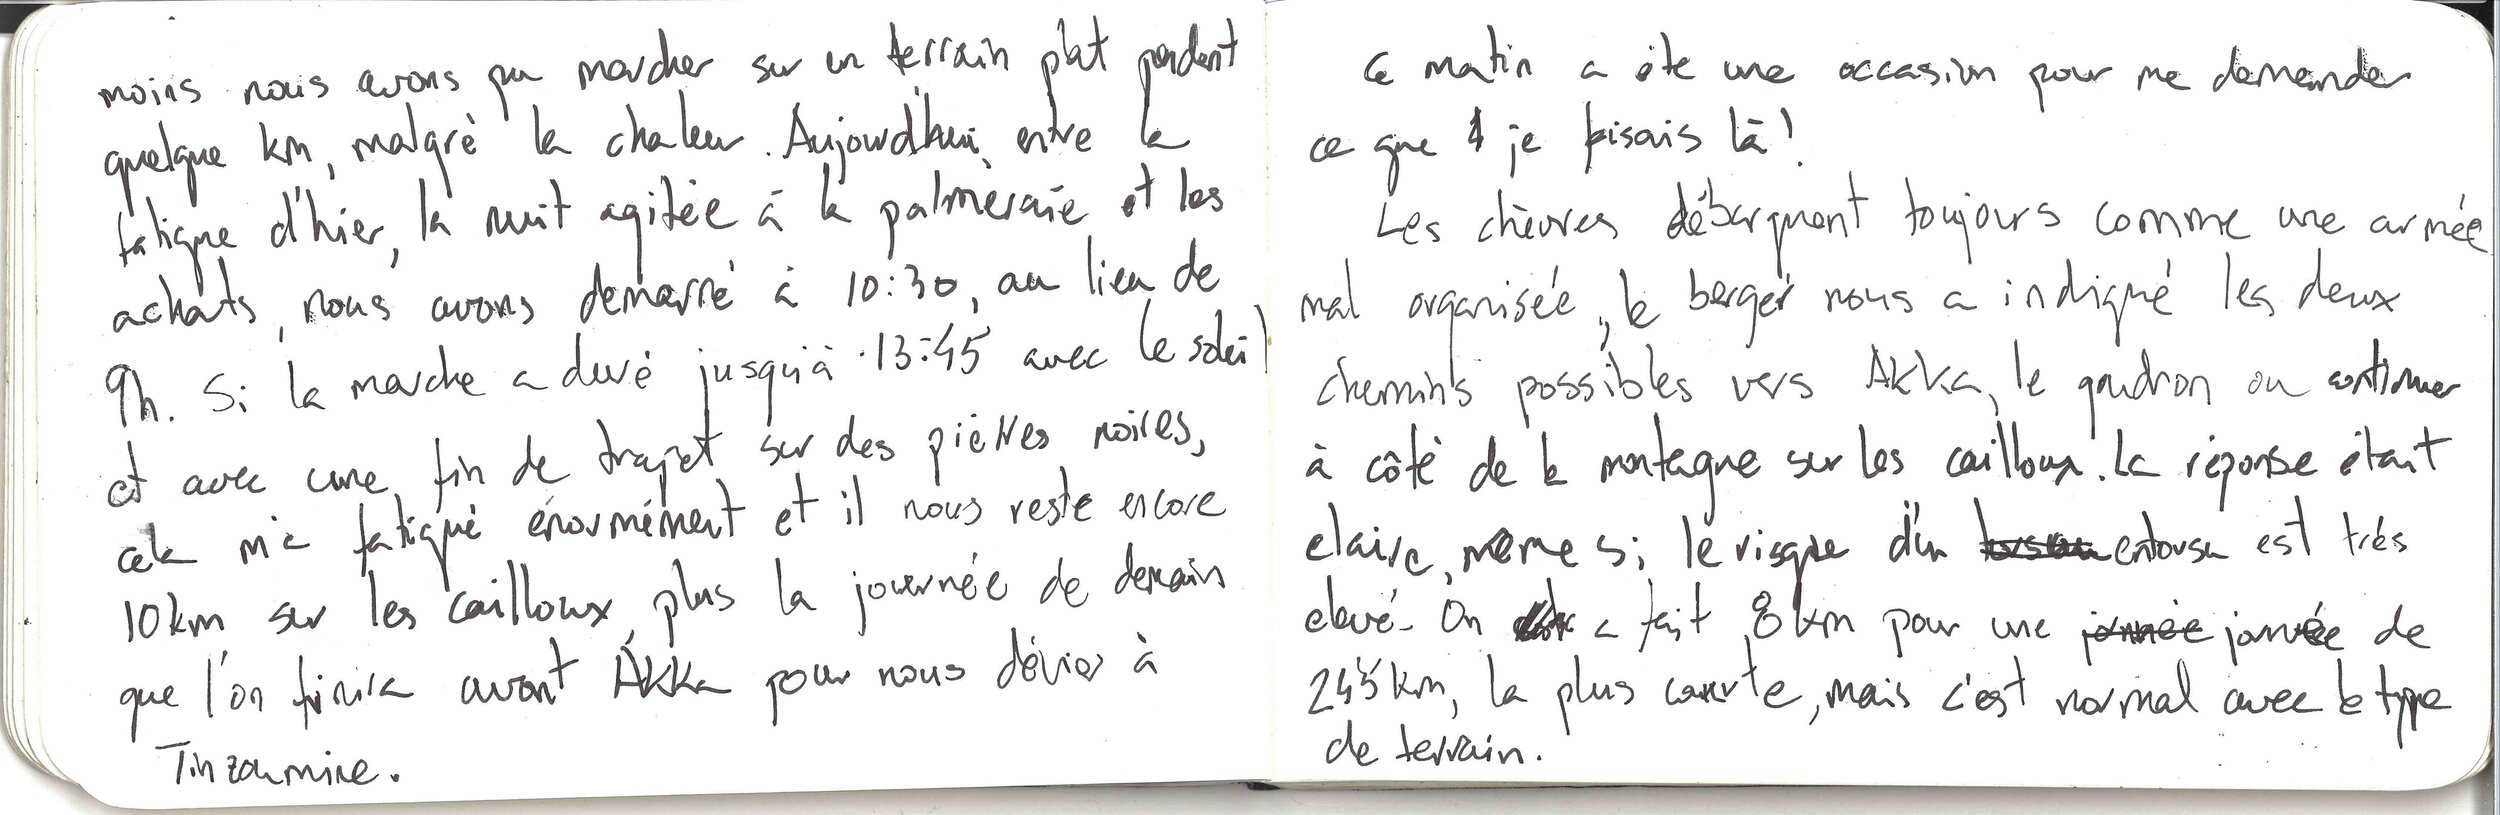 moins nous avons pu marcher sur un terrain plat pendant
quelque km, malgré la chaleur. Aujourd'hui, entre la
fatigue d'hier, la nuit agitée à la palmeraie et les
achats, nous avons demarré à 10:30, au lieu de
9h. Si la marche a duré jusqu'à 13:45 avec le soleil
et avec une fin de trajet sur des pierres noires,
cela m'a fatigué énormément et il nous reste encore
10km sur les cailloux, plus la journée de demain
que l'on finira avant Akka pour nous dévier à
Tinzoumine.
Ce matin a été une occasion pour me demander
ce que je faisais là!
Les chèvres débarquent toujours comme une armée
mal organisée, le berger nous a indiqué les deux
chemins possibles vers Akka, le goudron ou continuer
à côté de la montagne sur les cailloux. La réponse était
claire, même si le risque d'un entorse est très
elevé. On a fait 8km pour une journée de
km, la plus courte, mais c'est normal avec le type
de terrain.